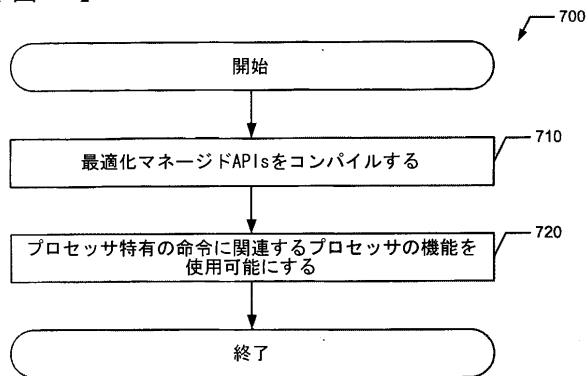 700
開始
最適化マネージドAPIsをコンパイルする
710
プロセッサ特有の命令に関連するプロセッサの機能を
使用可能にする
720
終了